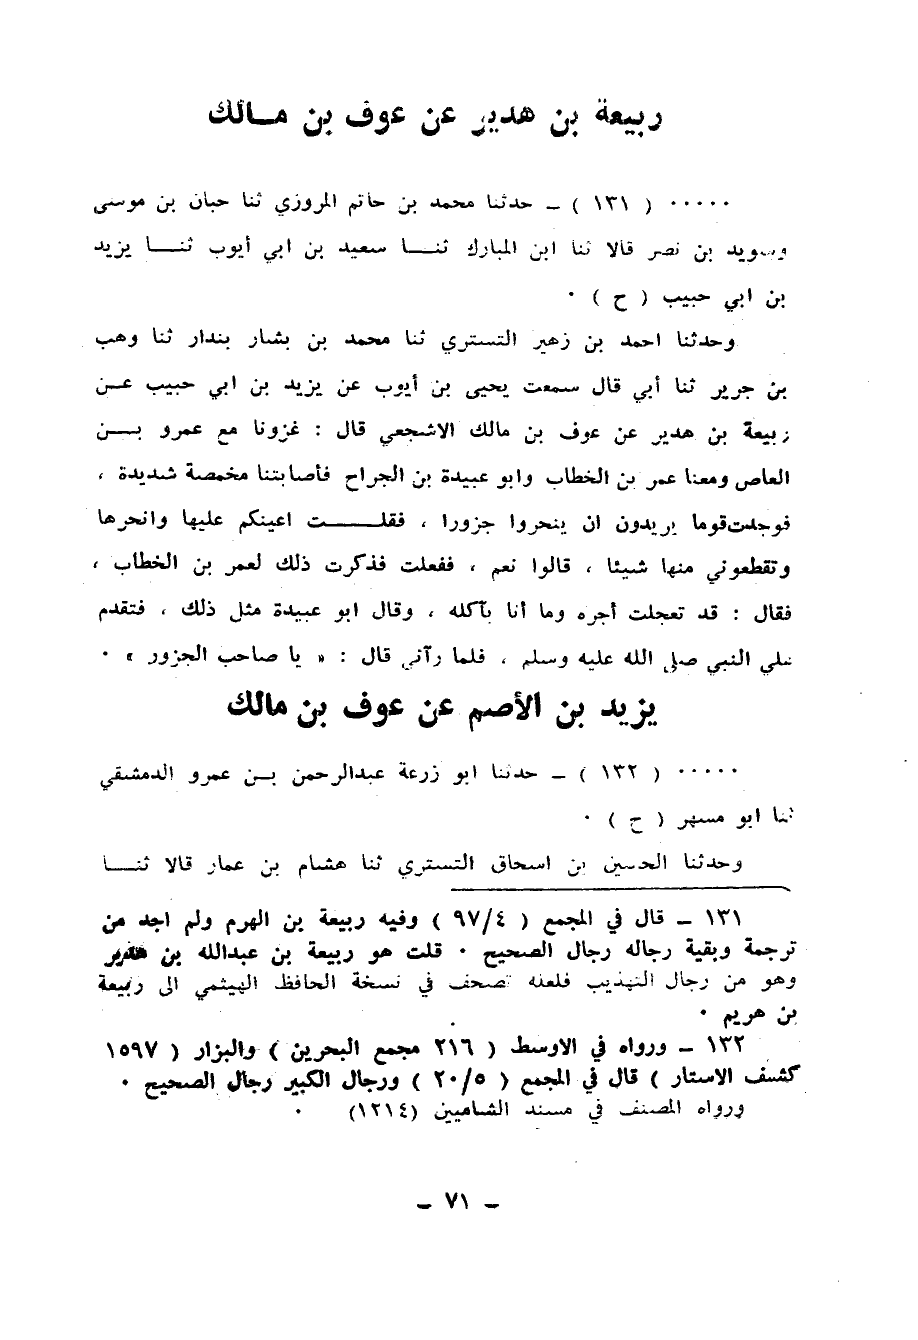 ربيعة بن هدير عن عوف بن مـالك
٠٠٠٠٠ ( ١٣١ ) ــ حدثنا محمد بن حاتم المروزي ثنا حبان بن موسى
وسويد بن نصر قالا ثنا ابن المبارك ثنــا سعيد بن ابي أيوب ثنــا يزيد
بن ابي حبيب ( ح ) ٠
وحدثنا احمد بن زهير التستري ثنا محمد بن بشار بندار ثنا وهب
بن جرير ثنا أبي قال سمعت يحيى بن أيوب عن يزيد بن ابي حبيب عــن
ربيعة بن هدير عن عوف بن مالك الاشجعي قال : غزونا مع عمرو بــن
العاص ومعنا عمر بن الخطاب وابو عبيدة بن الجراح فأصابتنا مخمصة شديدة ،
فوجدت قوما يريدون ان ينحروا جزورا ، فقلــــت اعينكم عليها وانحرها
وتقطعوني منها شيئا ، قالوا نعم ، ففعلت فذكرت ذلك لعمر بن الخطاب ،
فقال : قد تعجلت أجره وما أنا بآكله ، وقال ابو عبيدة مثل ذلك ، فتقدم
على النبي صلى الله عليه وسلم ، فلما رآني قال : « يا صاحب الجزور » ٠
يزيد بن الأصم عن عوف بن مالك
٠٠٠٠٠ ( ١٣٢ ) ــ حدثنا ابو زرعة عبدالرحمن بــن عمرو الدمشقي
ثنا ابو مسهر ( ح ) ٠
وحدثنا الحسين بن اسحاق التستري ثنا هشام بن عمار قالا ثنــا
١٣١ ــ قال في المجمع ( ٩٧/٤ ) وفيه ربيعة بن الهرم ولم اجد من
ترجمة وبقية رجاله رجال الصحيح ٠ قلت هو ربيعة بن عبدالله بن هدير
وهو من رجال التهذيب فلعله تصحف في نسخة الحافظ الهيثمي الى ربيعة
بن هريم ٠
١٣٢ ــ ورواه في الاوسط ( ٢١٦ مجمع البحرين ) والبزار ( ١٥٩٧
كشف الاستار ) قال في المجمع ( ٢٠/٥ ) ورجال الكبير رجال الصحيح ٠
ورواه المصنف في مسند الشاميين (١٢١٤) ٠
ــ ٧١ ــ